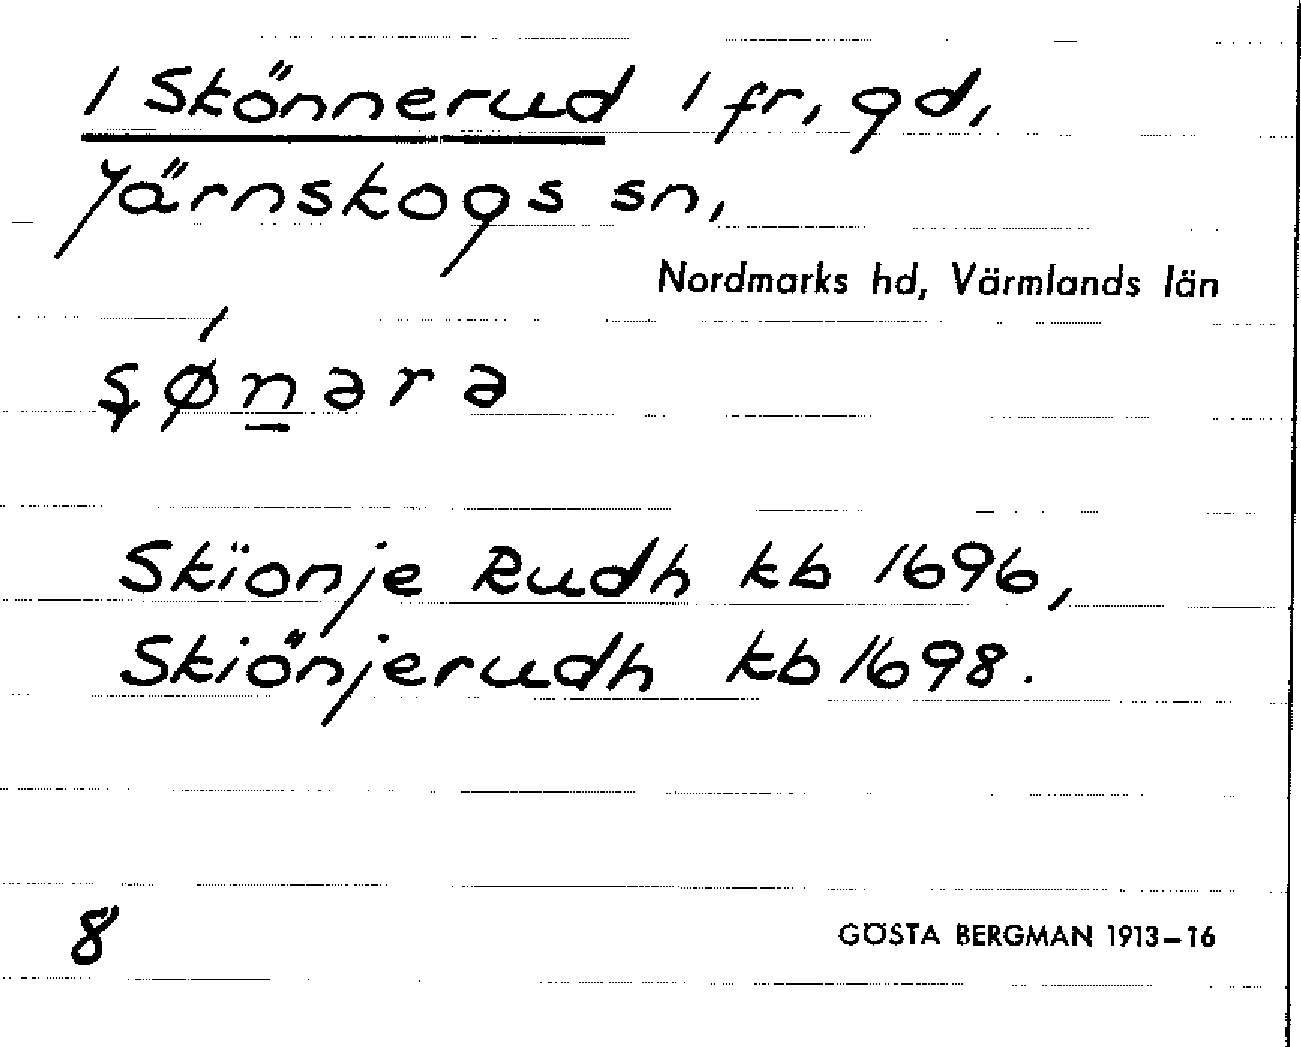 1 Skönnerud 1 fr, gd,
Järnskogs sn,
Nordmarks hd, Värmlands län
ʂǿn̲ərə
Skïonje Rudh kb 1696,
Skiönjerudh kb 1698.
8
GÖSTA BERGMAN 1913–16